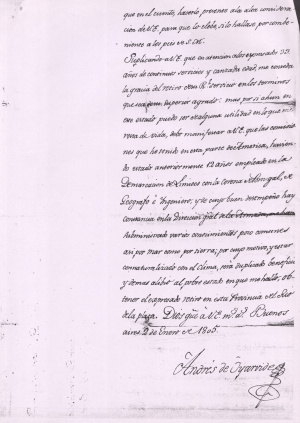 que en el cuento, hacerlo presente a la alta consideracion
de V.E. para que lo eleve, si lo hallase por combeniente
a los pies de S.M.
Suplicando a V.E. que en atencion a expresados 32
años de continuos servicios y cansada edad, me conceda
la gracia del retiro del Rl. servicio en los terminos
que sea de su superior agrado: mas por si achun en
este estado puedo ser de alguna utilidad en lo que me
resta de vida, debo manifestar a V.E. que las comisiones
que he tenido en esta parte de America, haviendo
estado anteriormente 12 años empleado en la
Demarcacion de Limites con la corona de Portugal, de
Geografo é Yngeniero, y de cuyo buen desempeño hay
constancia en la Direccion gral. de la
administrado varios conocimientos
asi por mar como por tierra; por cuyo motivo, y estar
connaturalizado con el clima, será duplicado beneficio
y demas alibio al pobre estado en que me hallo, obtener
el expresado retiro en esta Provincia del Rio
de la plata. Dios gûe. a V.E. ms. as. Buenos
aires 2 de Enero de 1805.
Andrés de Oyarvide